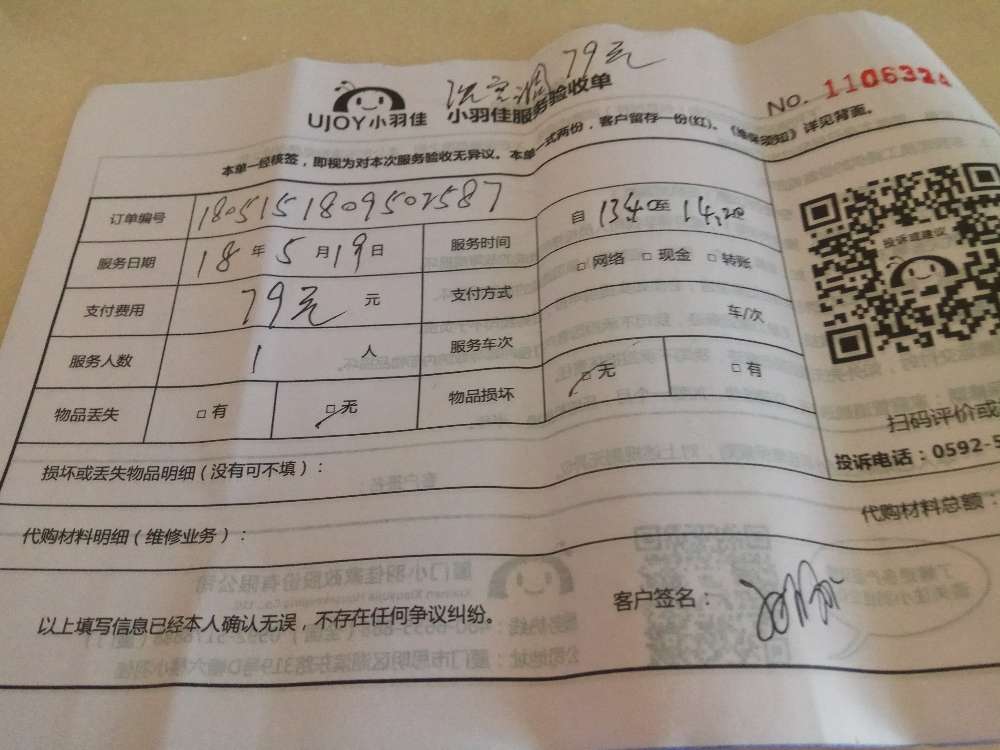 洗空调 79元
UJOY小羽佳 小羽佳服务验收单
No. 1106324
本单一经核签，即视为对本次服务验收无异议。本单一式两份，客户留存一份(红)。《维保须知》详见背面。
订单编号 1805151809502587 自 13:40至 14:20
服务日期 18 年 5 月 19 日 服务时间
支付费用 79元 元 支付方式 □ 网络 □ 现金 □ 转账
服务人数 1 人 服务车次 车/次
物品丢失 □ 有 □ 无 物品损坏 □ 无 □ 有
投诉或建议
扫码评价或
投诉电话：0592-5
损坏或丢失物品明细（没有可不填）：
代购材料明细（维修业务）： 代购材料总额：
以上填写信息已经本人确认无误，不存在任何争议纠纷。 客户签名：